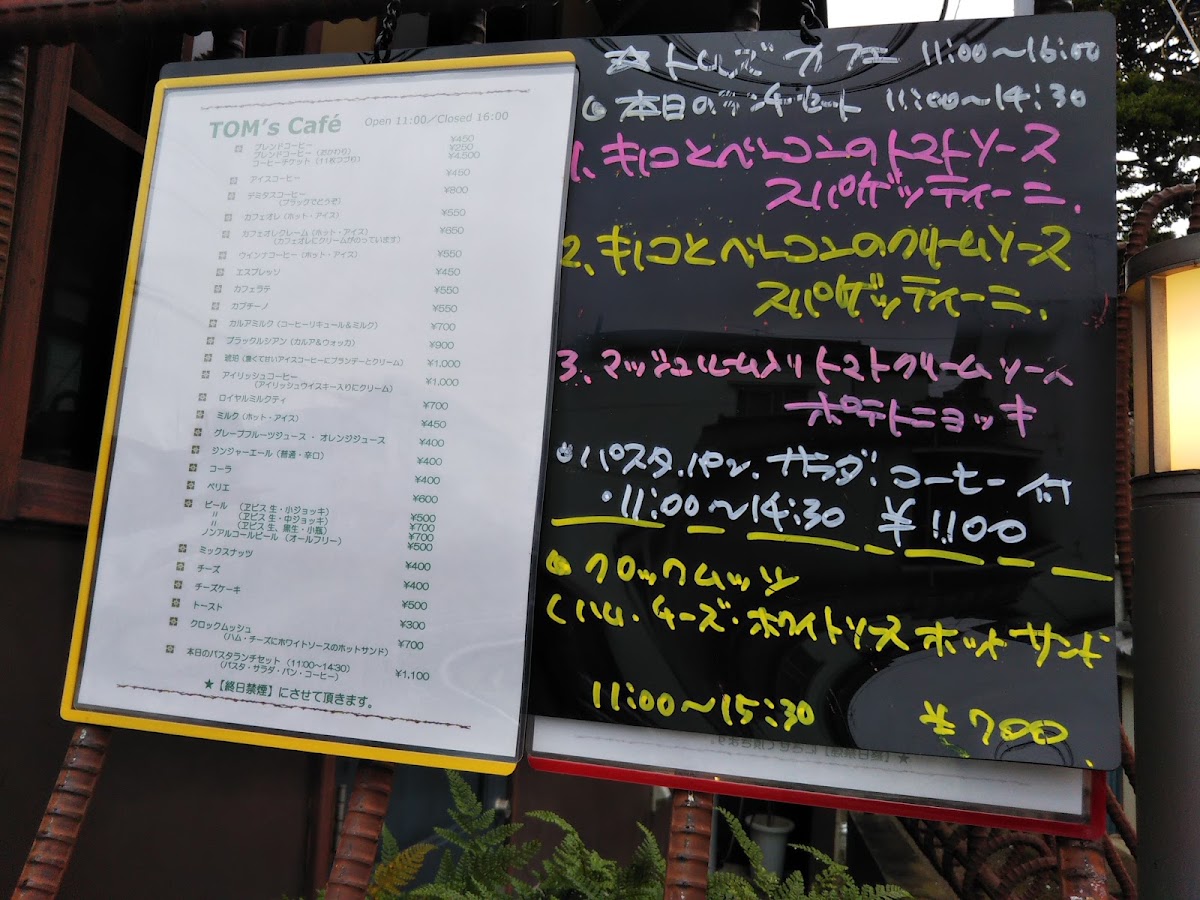 TOM's Café Open 11:00／Closed 16:00
ブレンドコーヒー ¥450
ブレンドコーヒー（おかわり） ¥250
コーヒーチケット（11枚つづり） ¥4,500
アイスコーヒー ¥450
デミタスコーヒー ¥800
（ブラックでどうぞ）
カフェオレ（ホット・アイス） ¥550
カフェオレクレーム（ホット・アイス） ¥650
（カフェオレにクリームがのっています）
ウインナコーヒー（ホット・アイス） ¥550
エスプレッソ ¥450
カフェラテ ¥550
カプチーノ ¥550
カルアミルク（コーヒーリキュール＆ミルク） ¥700
ブラックルシアン（カルア＆ウォッカ） ¥900
琥珀（濃くて甘いアイスコーヒーにブランデーとクリーム） ¥1,000
アイリッシュコーヒー ¥1,000
（アイリッシュウイスキー入りにクリーム）
ロイヤルミルクティ ¥700
ミルク（ホット・アイス） ¥450
グレープフルーツジュース ・ オレンジジュース ¥400
ジンジャーエール（普通・辛口） ¥400
コーラ ¥400
ペリエ ¥600
ビール （ヱビス 生・小ジョッキ） ¥500
〃 （ヱビス 生・中ジョッキ） ¥700
〃 （ヱビス 生、黒生・小瓶） ¥700
ノンアルコールビール （オールフリー） ¥500
ミックスナッツ ¥400
チーズ ¥400
チーズケーキ ¥500
トースト ¥300
クロックムッシュ ¥700
（ハム・チーズにホワイトソースのホットサンド）
本日のパスタランチセット （11:00〜14:30） ¥1,100
（パスタ・サラダ・パン・コーヒー）
★【終日禁煙】にさせて頂きます。
☆トムズカフェ 11:00〜16:00
本日のランチセット 11:00〜14:30
1、キノコとベーコンのトマトソース
スパゲッティーニ.
2、キノコとベーコンのクリームソース
スパゲッティーニ.
3、マッシュルーム入りトマトクリームソース
ポテトニョッキ
パスタ.パン.サラダ.コーヒー付
・11:00〜14:30 ¥1,100
クロックムッシ
(ハム・チーズ・ホワイトソースホットサンド
11:00〜15:30 ¥700
★【終日禁煙】にさせて頂きます。